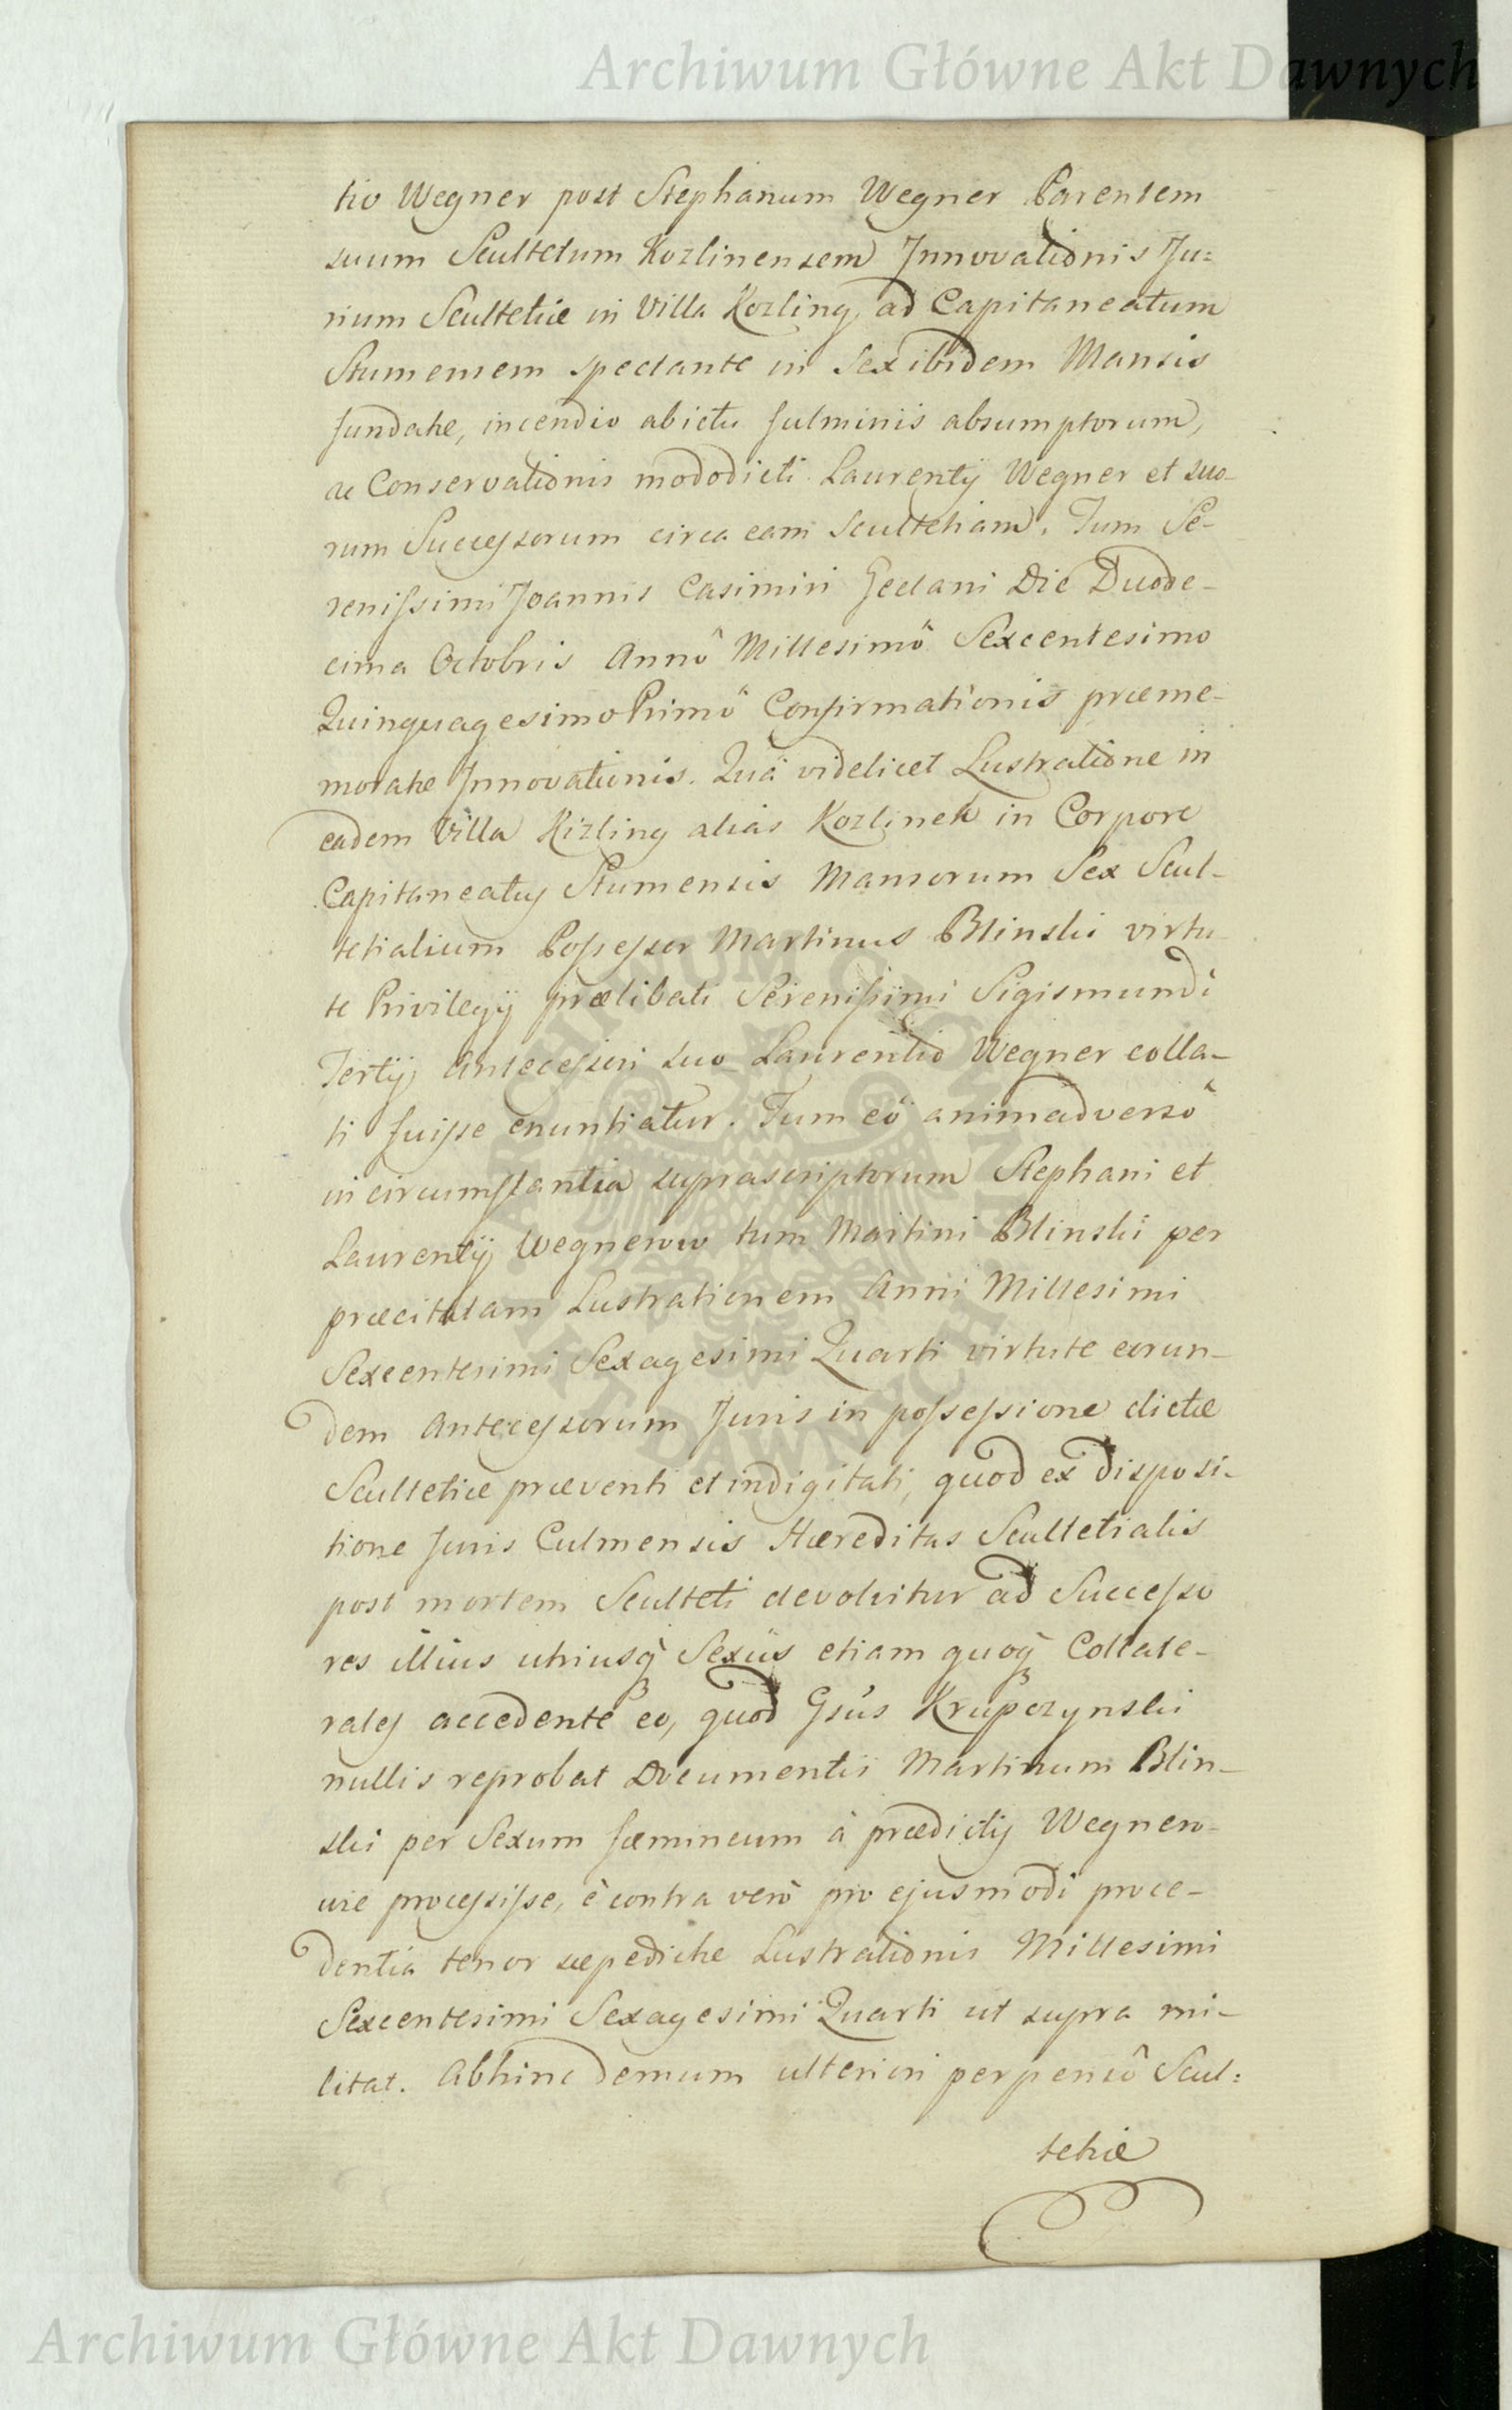 Archiwum Główne Akt Dawnych
tio Wegner post Stephanum Wegner Parentem
suum Scultetum Kozlinensem Innovationis Ju=
rium Scultetiæ in Villa Kozling, ad Capitaneatum
Stumensem spectante in Sex ibidem Mansis
fundatæ, incendio abictu fulminis absumptorum,
ac Conservationis mododicti Laurentij Wegner et suo-
rum Successorum circa eam Scultetiam. Tum Se-
renissimi Joannis Casimiri Gedani Die Duode-
cima Octobris Annô Millesimô Sexcentesimo
Quinquagesimo Primô Confirmationis præme-
moratæ Innovationis. Quâ videlicet Lustratione in
eadem Villa Kizling alias Kozlinek in Corpore
Capitaneatus Stumensis Mansorum Sex Scul-
tetialium Possessor Martinus Blinski virtu-
te Privilegij prælibati Serenissimi Sigismundi
Tertij Antecessori suo Laurentio Wegner colla-
ti fuisse enuntiatur. Tum eô animadversô
in circumstantia suprascriptorum Stephani et
Laurentij Wegnerow tum Martini Blinski per
præcitatam Lustrationem Anni Millesimi
Sexcentesimi Sexagesimi Quarti virtute eorun-
dem Antecessorum Juris in possessione dictæ
Scultetiæ præventi et indigitati, quod ex disposi-
tione Juris Culmensis Hæreditas Scultetialis
post mortem Sculteti devolvitur ad Successo
res illius utriusq Sexûs etiam quoq Collate-
rales accedente eo, quod Gsus Krupczynski
nullis reprobat Documentis Martinum Blin-
ski per Sexum fæmineum à prædictis Wegnero-
wie processisse, è contra verò pro ejusmodi proce-
dentia tenor sæpedictæ Lustrationis Millesimi
Sexcentesimi Sexagesimi Quarti ut supra mi-
litat. Abhinc demum ulteriori perpensô Scul=
tetiæ
Archiwum Główne Akt Dawnych